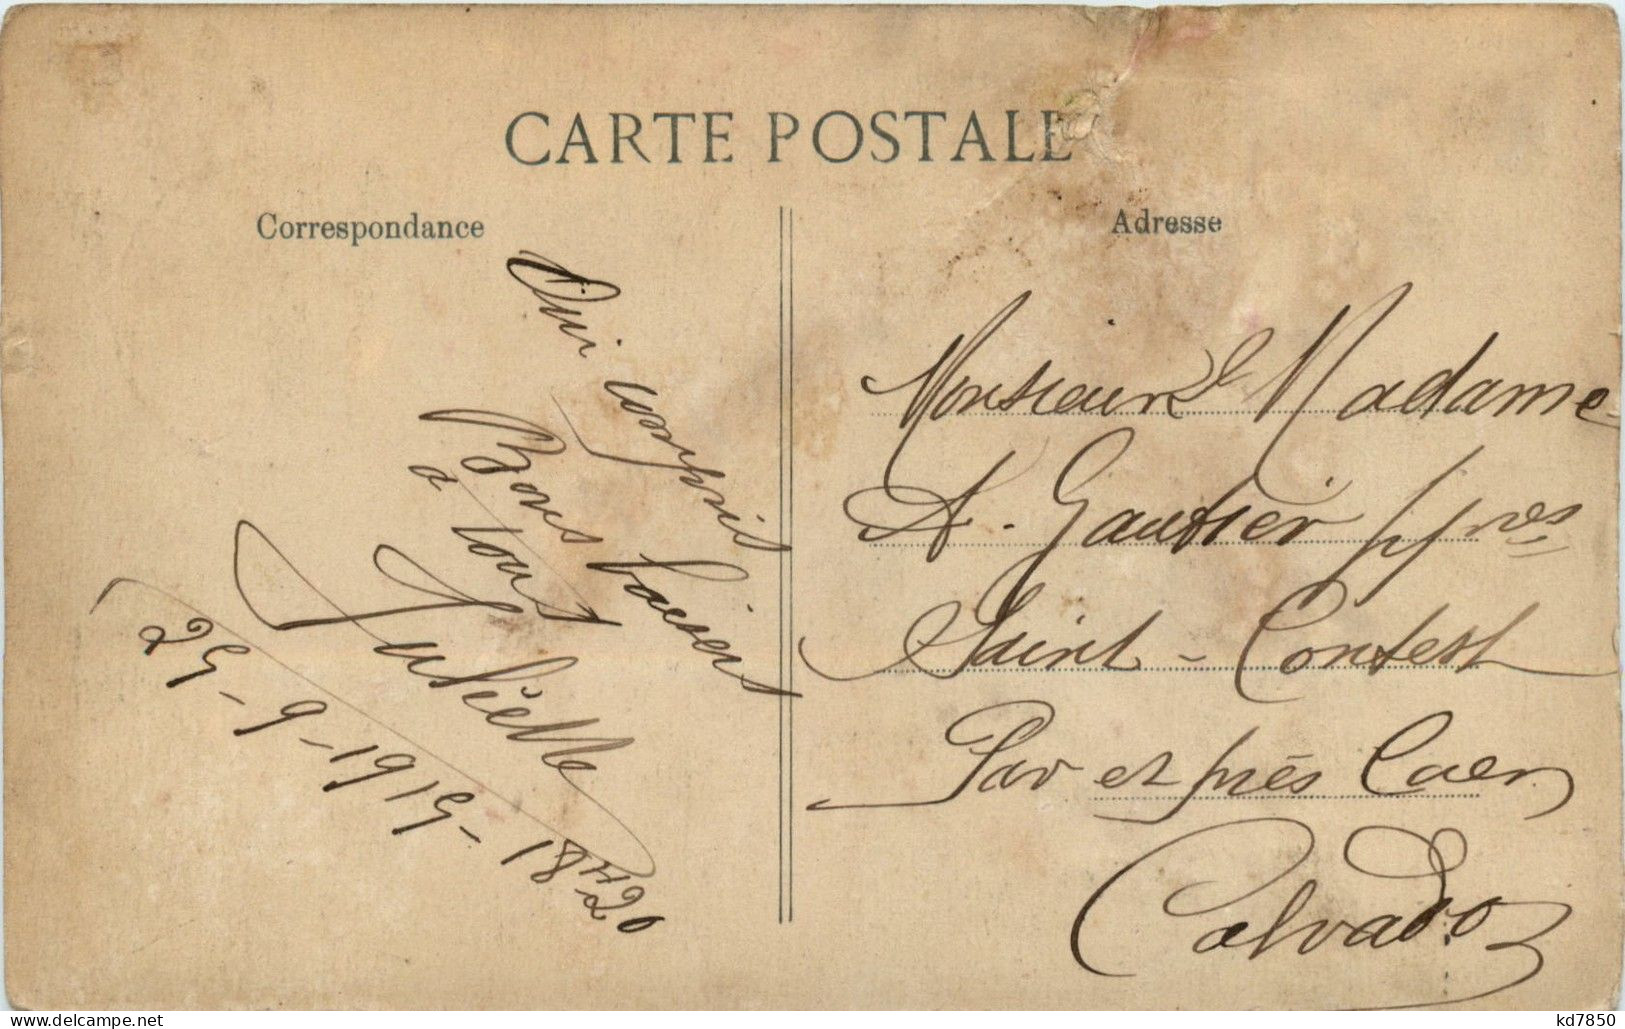 CARTE POSTALE
Correspondance
Oui compris
Bons baisers
à tous
Juliette
29-9-1919-18H20
Adresse
Monsieur & Madame
A. Gautier pptres
Saint-Contest
Par et près Caen
Calvados
www.delcampe.net
kd7850